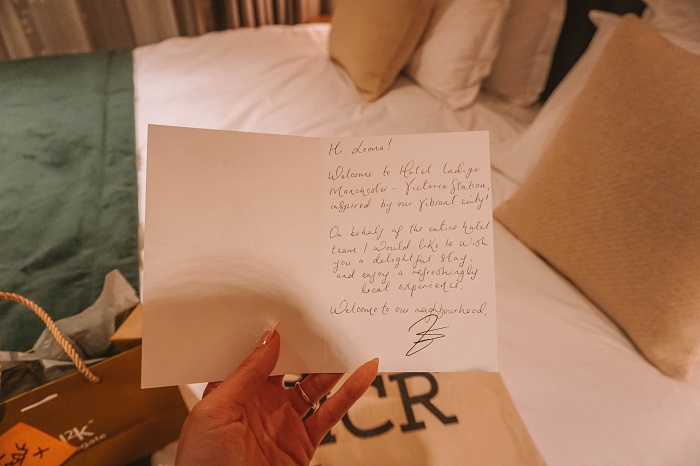 Hi Leona!
Welcome to Hotel Indigo
Manchester - Victoria Station,
inspired by our vibrant city!
On behalf of the entire hotel
team I would like to wish
you a delightful stay,
and enjoy a refreshingly
local experience.
Welcome to our neighbourhood,
CR
K
gate